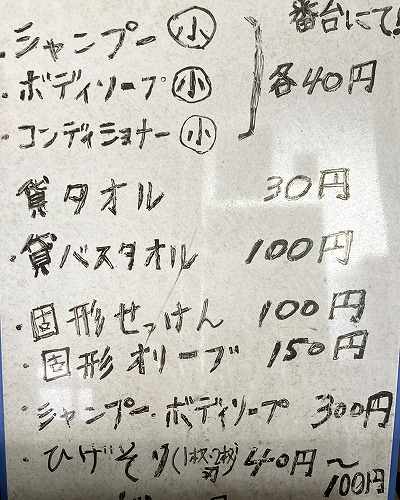 番台にて!
・シャンプー 小
・ボディソープ 小 各40円
・コンディショナー 小
貸タオル 30円
・貸バスタオル 100円
・固形せっけん 100円
・固形オリーブ 150円
・シャンプー・ボディソープ 300円
・ひげそり(1枚刃・2枚刃) 40円〜
100円